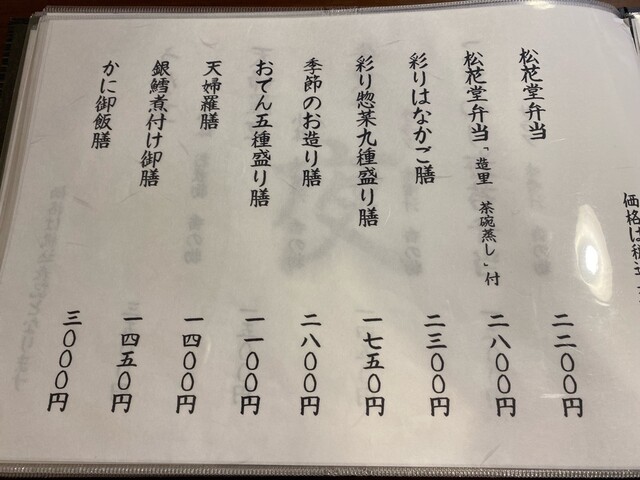 価格は税込
松花堂弁当 二二〇〇円
松花堂弁当「造里 茶碗蒸し」付 二八〇〇円
彩りはなかご膳 二三〇〇円
彩り惣菜九種盛り膳 一七五〇円
季節のお造り膳 二八〇〇円
おでん五種盛り膳 一一〇〇円
天婦羅膳 一四〇〇円
銀鱈煮付け御膳 一四五〇円
かに御飯膳 三〇〇〇円